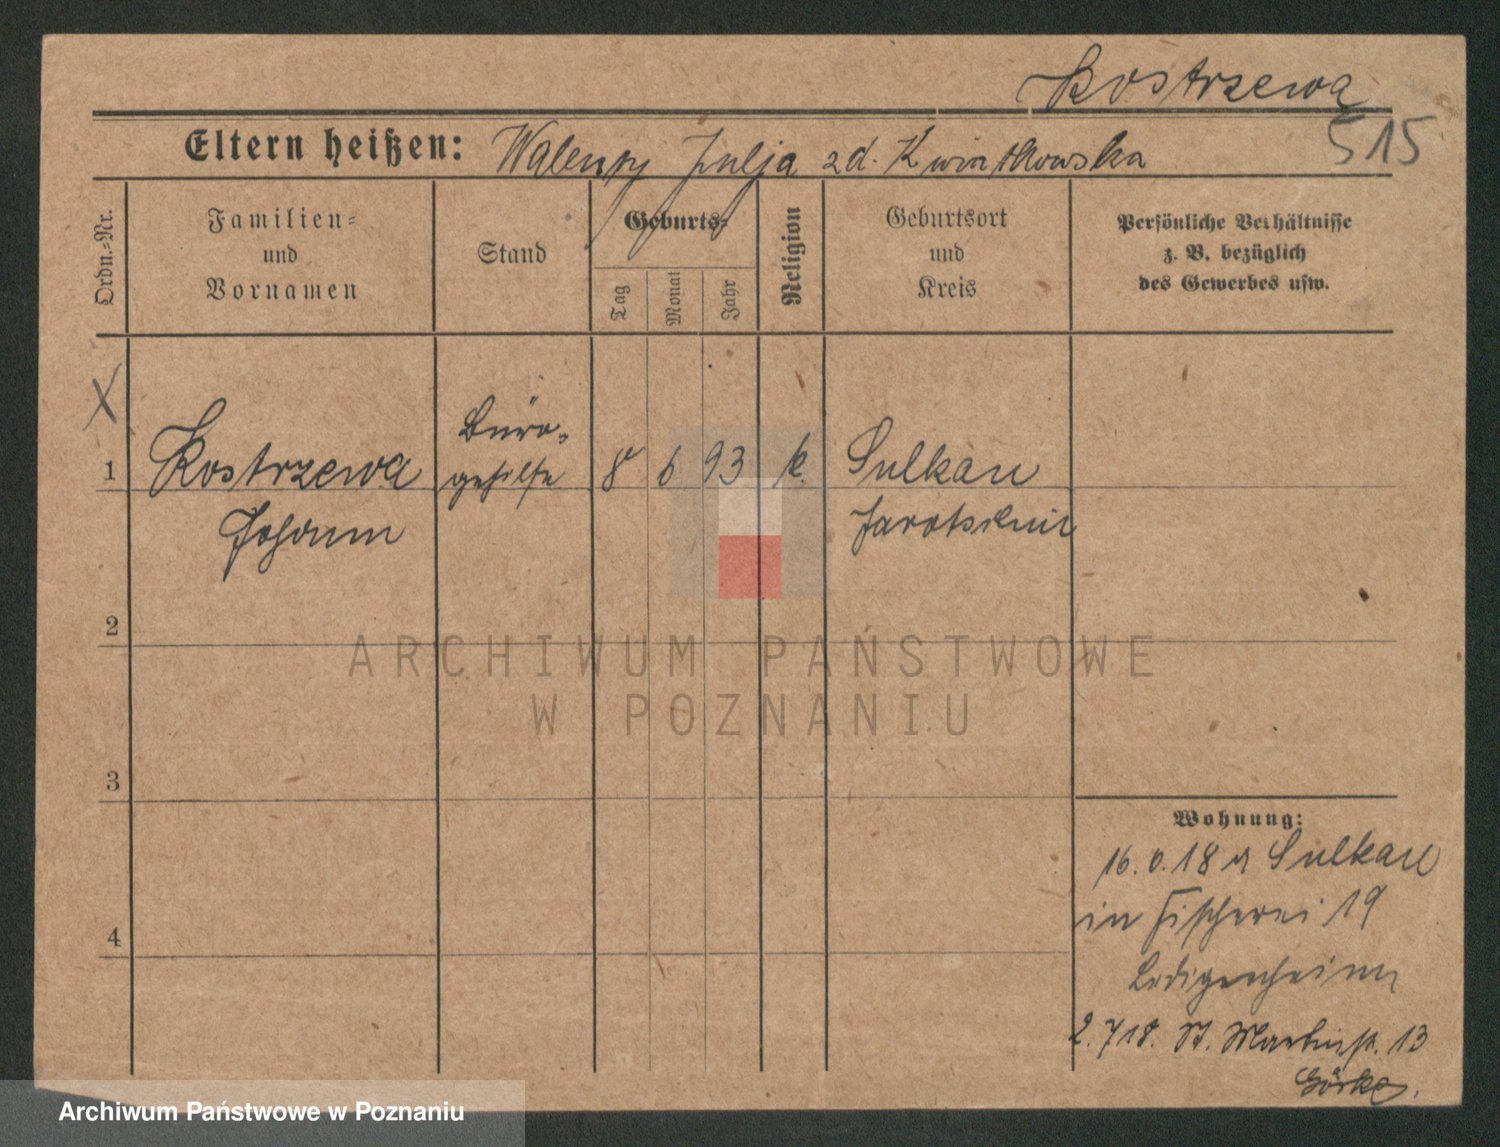 Kostrzewa
515
Eltern heißen: Walenty Julja zd. Kwiatkowska
Ordn.=Nr.
Familien=
und
Vornamen
Stand
Geburts=
Tag
Monat
Jahr
Religion
Geburtsort
und
Kreis
Persönliche Verhältnisse
z. B. bezüglich
des Gewerbes usw.
X
1
Kostrzewa
Johann
Büro-
gehilfe
8 6 93 k.
Sulkau
Jarotschin
2
3
4
Wohnung:
16. 18 Sulkau
in Fischerei 19
Ledigenheim
2. 7 18. St. Martinstr. 13
ARCHIWUM PAŃSTWOWE
W POZNANIU
Archiwum Państwowe w Poznaniu